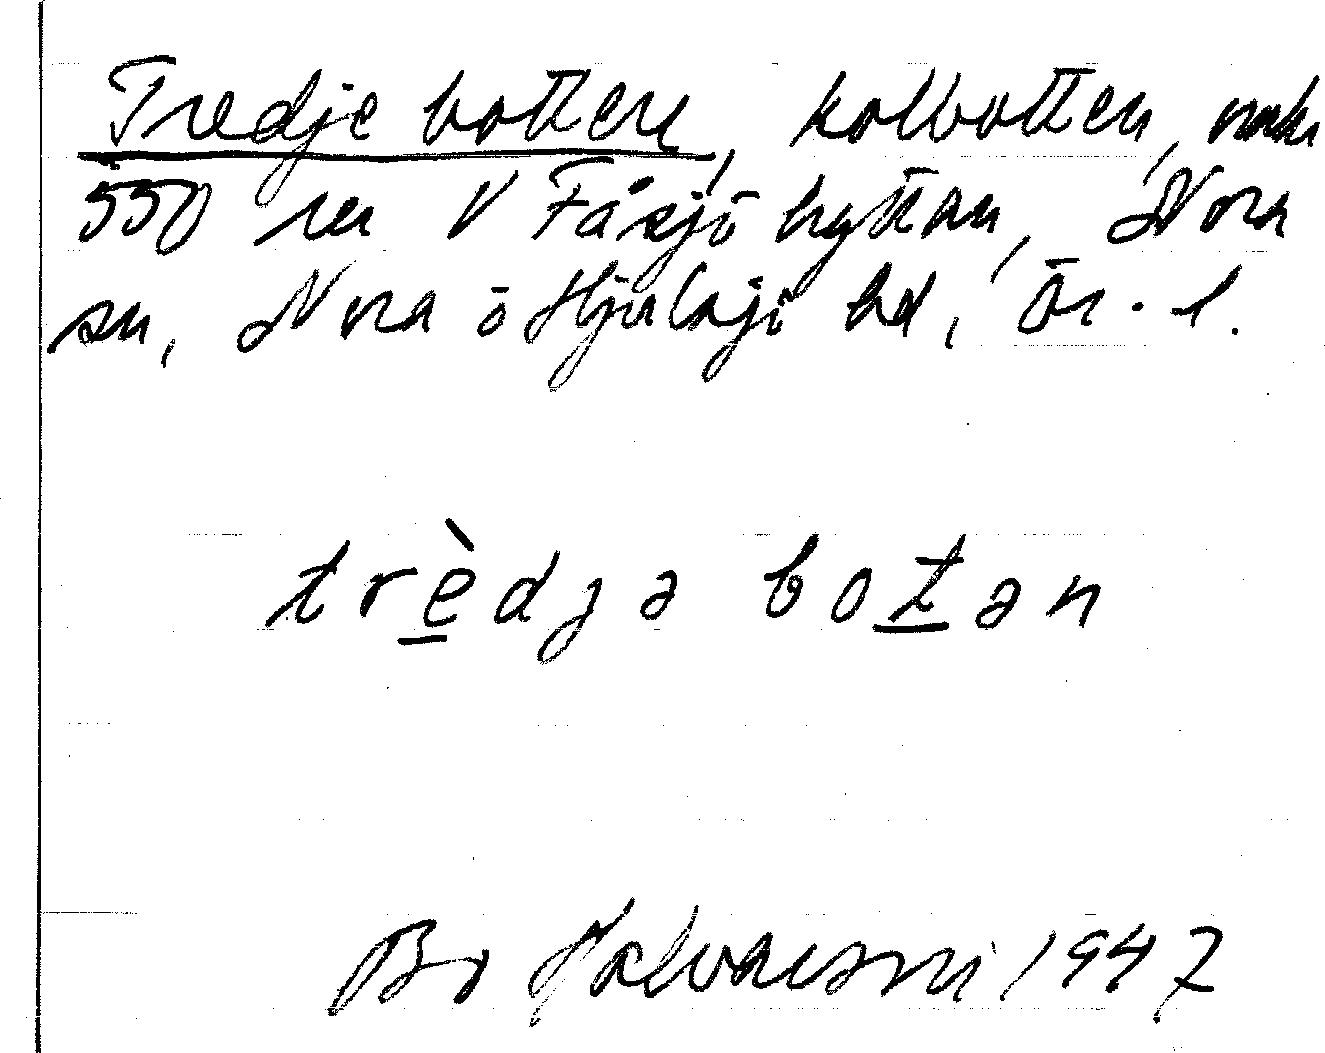 Tredje botten, kolbotten, omkr
550 m V Fåsjöhyttan, Nora
sn, Nora o Hjulsjö hd, Ör. l.
trèdjə botən
Bo Halvarsson 1947